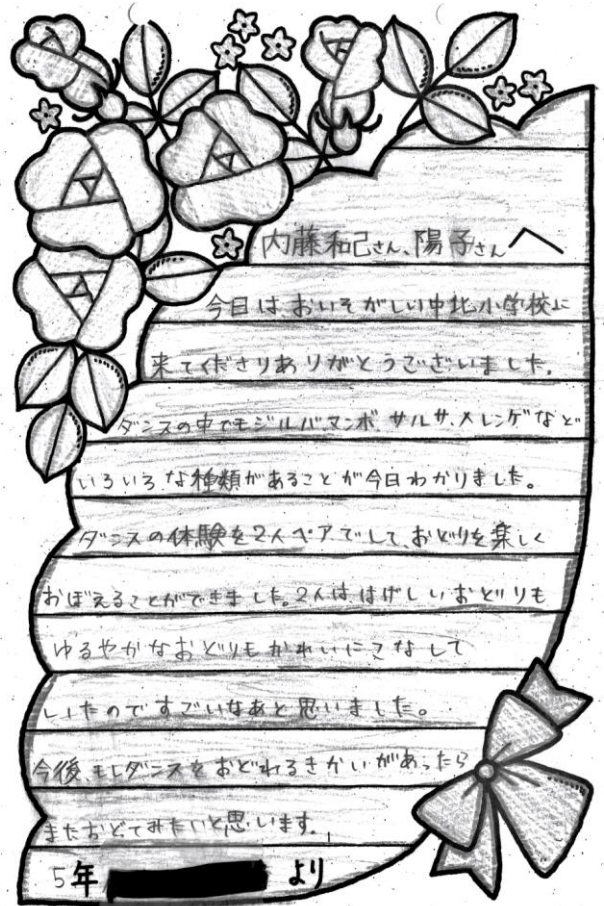 内藤和己さん、陽子さんへ
今日はおいそがしい中北小学校に
来てくださりありがとうございました。
ダンスの中でもジルバ、マンボ、サルサ、メレンゲなど
いろいろな種類があることが今日わかりました。
ダンスの体験を2人ペアでして、おどりを楽しく
おぼえることができました。2人ははげしいおどりも
ゆるやかなおどりもかれいにこなして
いたのですごいなあと思いました。
今後、もしダンスをおどれるきかいがあったら
またおどてみたいと思います。
5年 より